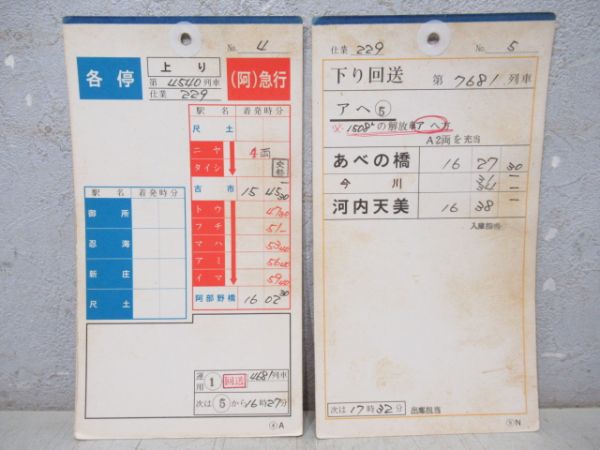 No. 4
各停
上り
第4540列車
仕業 229
(阿)急行
駅名 着発時分
尺土
ニヤ 4両
タイシ
古市 15 45 30
トウ 47
フチ 51 —
マハ 53 40
アミ 56
イマ 59
阿部野橋 16 02 30
駅名 着発時分
御所
忍海
新庄
尺土
運用 ① 回送 4681列車
次は ⑤ から 16時27分
④A
仕業 229 No. 5
下り回送 第7681列車
アヘ⑤
※1508レの解放車ア ヘ方
A2両を充当
あべの橋 16 27 30
今川 31 —
34 —
河内天美 16 38 —
入庫担当
次は 17時32分 出庫担当
⑤N